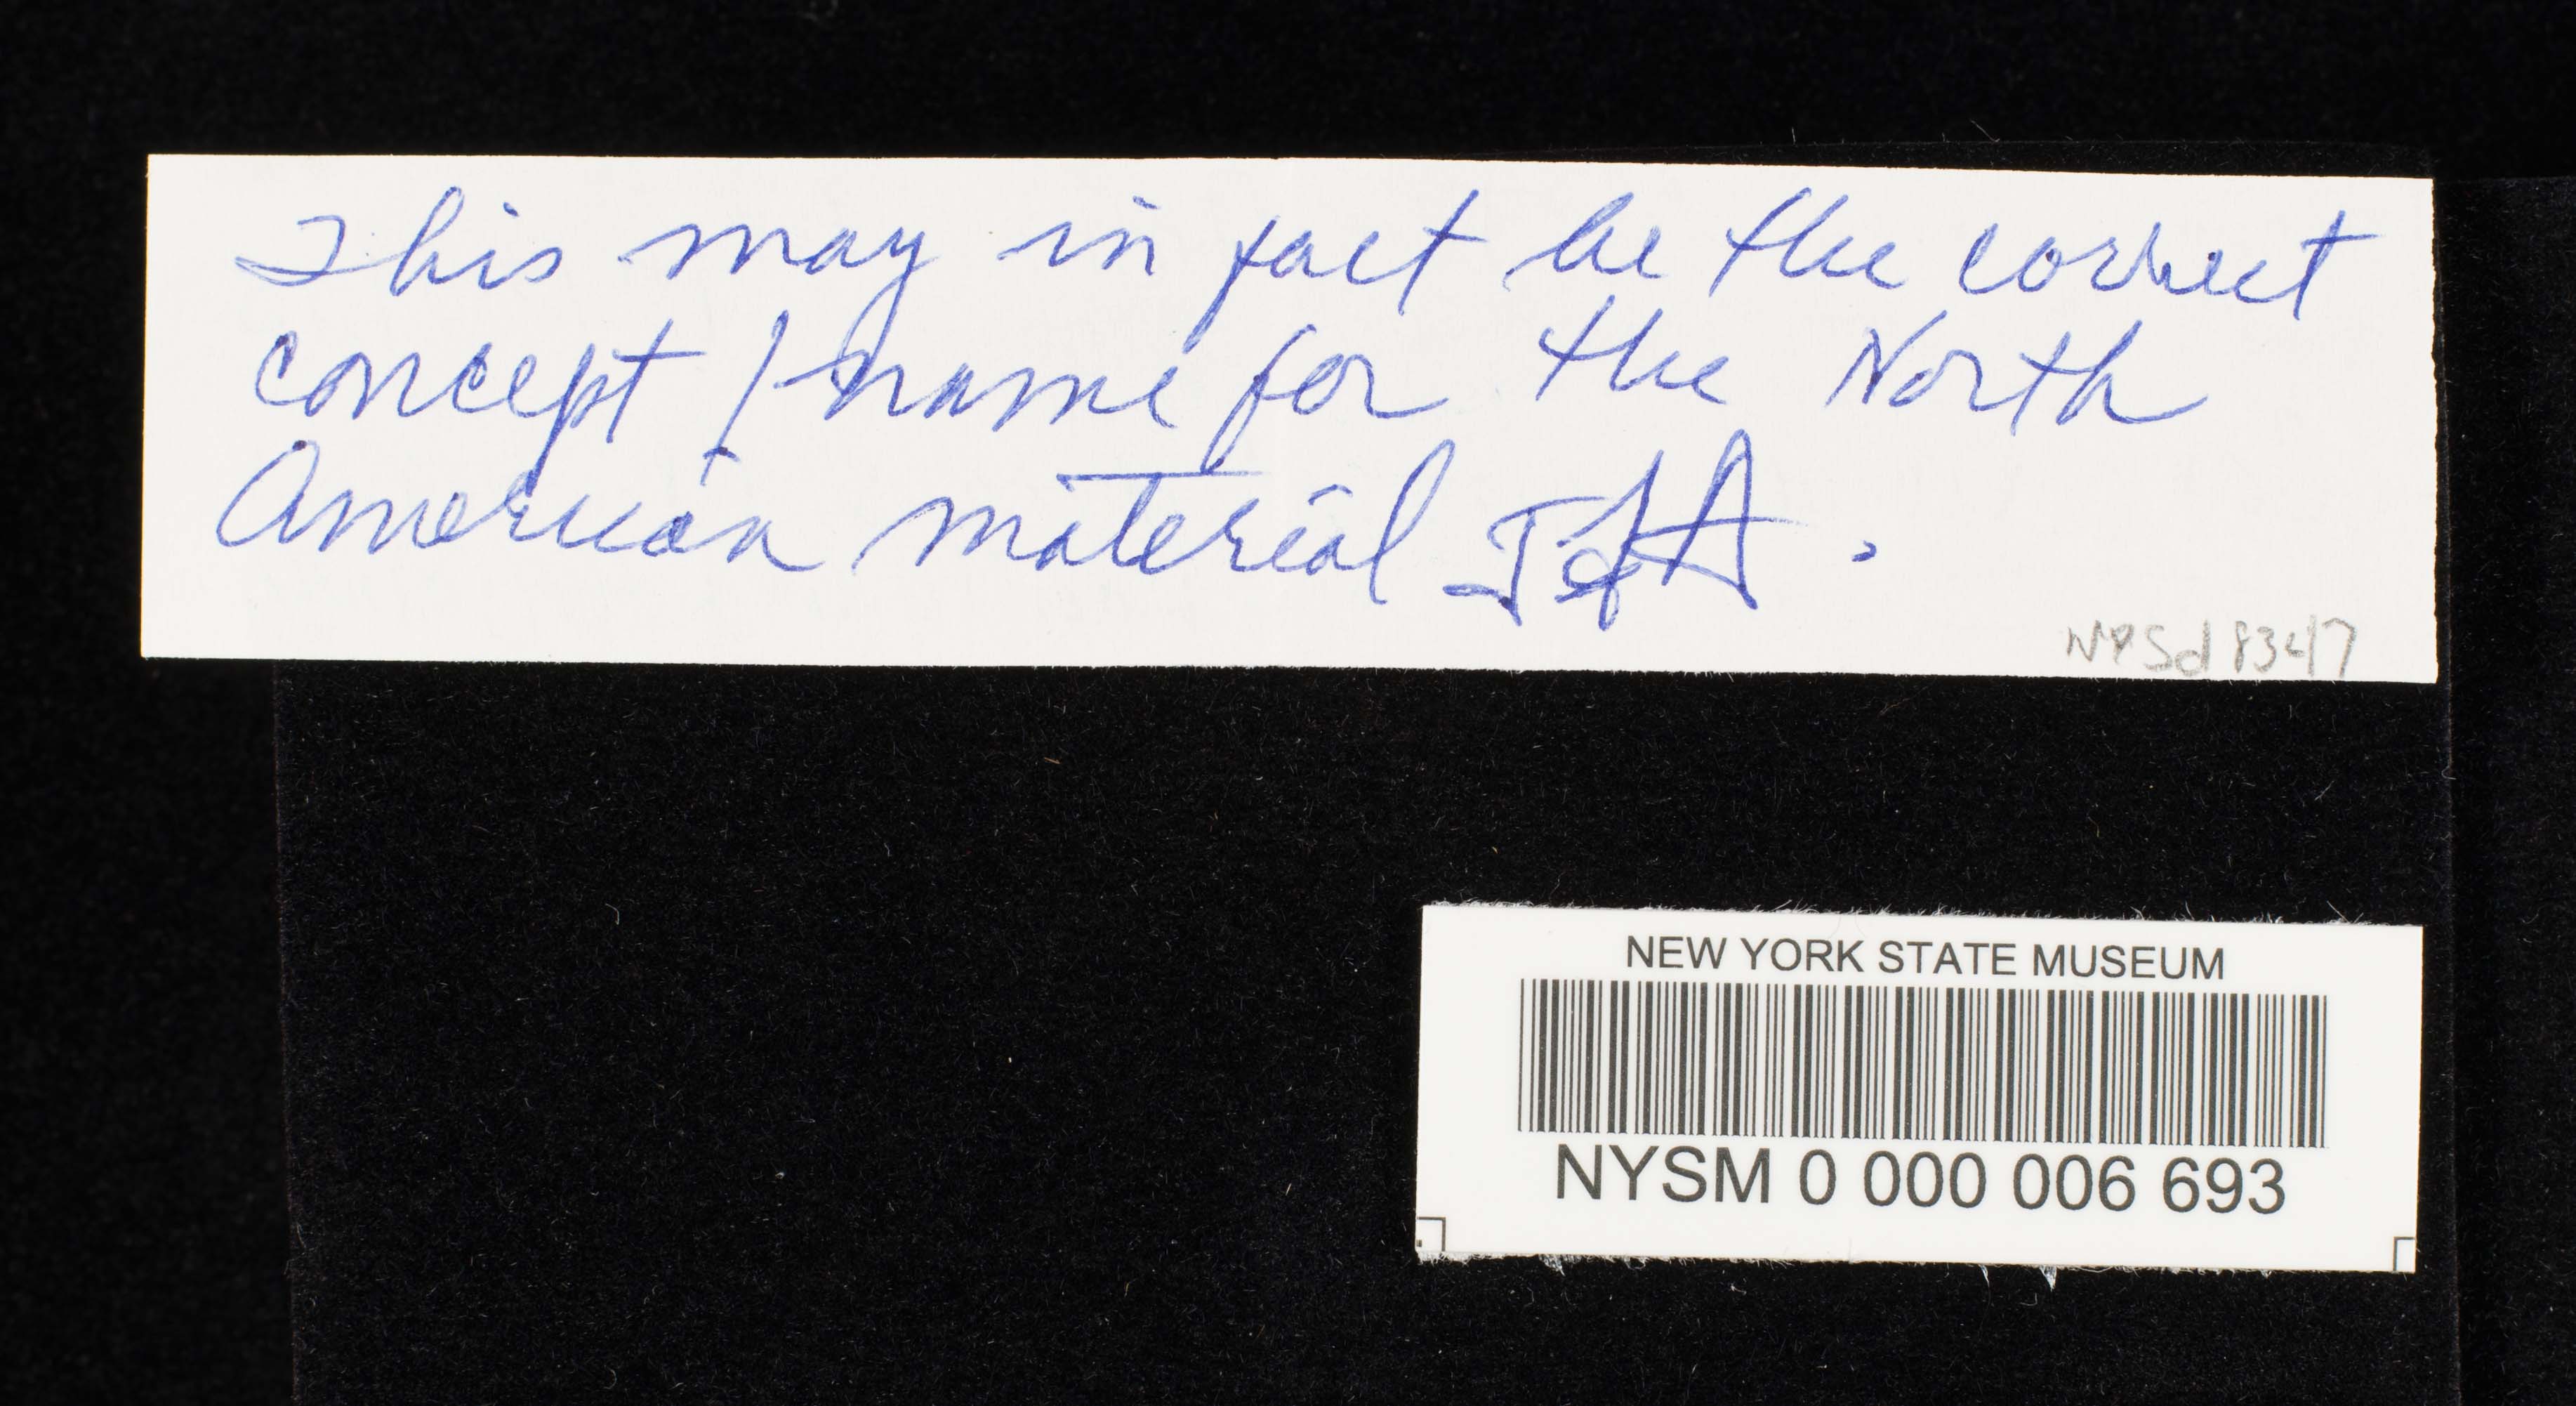 This may in fact be the correct
concept / name for the North
American material JFA.
NYSd 8347
NEW YORK STATE MUSEUM
NYSM 0 000 006 693